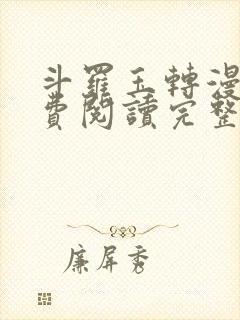 斗羅玉轉漫
費閱讀完整
廉屏秀